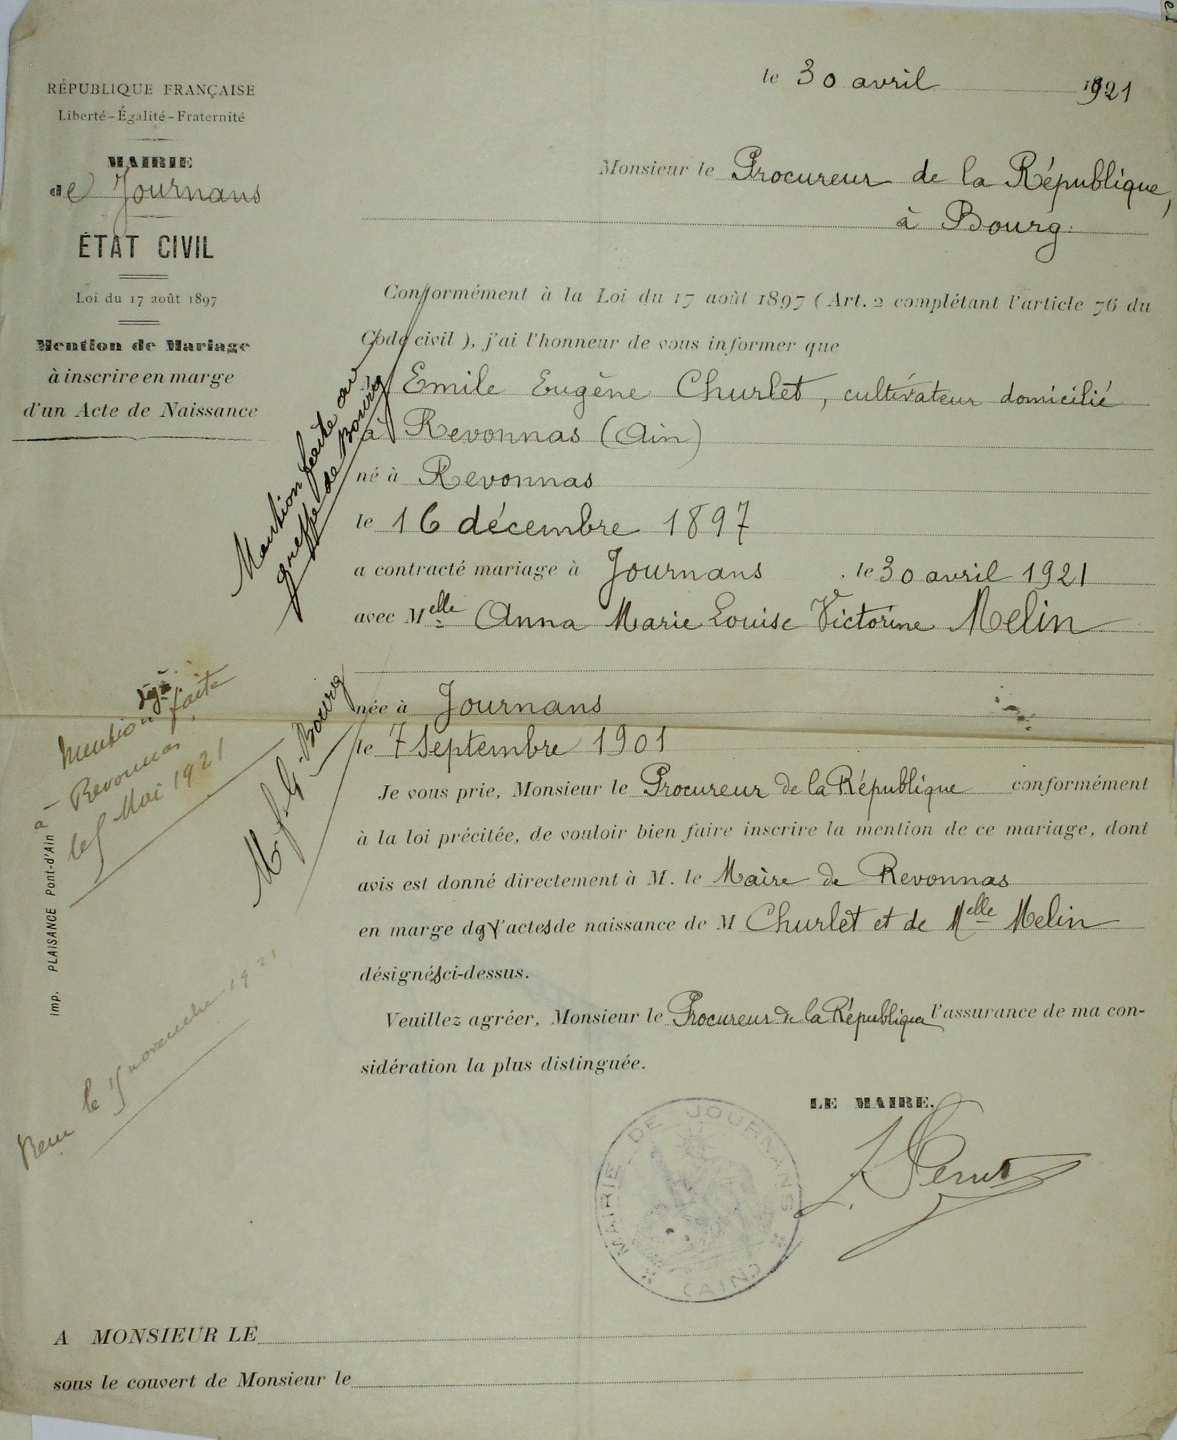 RÉPUBLIQUE FRANÇAISE
Liberté-Égalité-Fraternité
MAIRIE
de Journans
ÉTAT CIVIL
Loi du 17 août 1897
Mention de Mariage
à inscrire en marge
d'un Acte de Naissance
le 30 avril 1921
Monsieur le Procureur de la République,
à Bourg.
Conformément à la Loi du 17 août 1897 (Art. 2 complétant l'article 76 du
Code civil), j'ai l'honneur de vous informer que
Emile Eugène Churlet, cultivateur domicilié
à Revonnas (Ain)
né à Revonnas
le 16 décembre 1897
a contracté mariage à Journans, le 30 avril 1921
avec Melle Anna Marie Louise Victorine Melin
née à Journans
le 7 Septembre 1901
Je vous prie, Monsieur le Procureur de la République conformément
à la loi précitée, de vouloir bien faire inscrire la mention de ce mariage, dont
avis est donné directement à M. le Maire de Revonnas
en marge des actes de naissance de M Churlet et de Melle Melin
désignés ci-dessus.
Veuillez agréer, Monsieur le Procureur de la République l'assurance de ma con-
sidération la plus distinguée.
LE MAIRE.
MAIRIE DE JOURNANS
(AIN)
Mention faite au
greffe de Bourg
Mention déjà faite
à Revonnas
le 5 Mai 1921
M. f. G. Bourg
le 15 novembre 1921
Imp. PLAISANCE Pont-d'Ain
A MONSIEUR LE
sous le couvert de Monsieur le